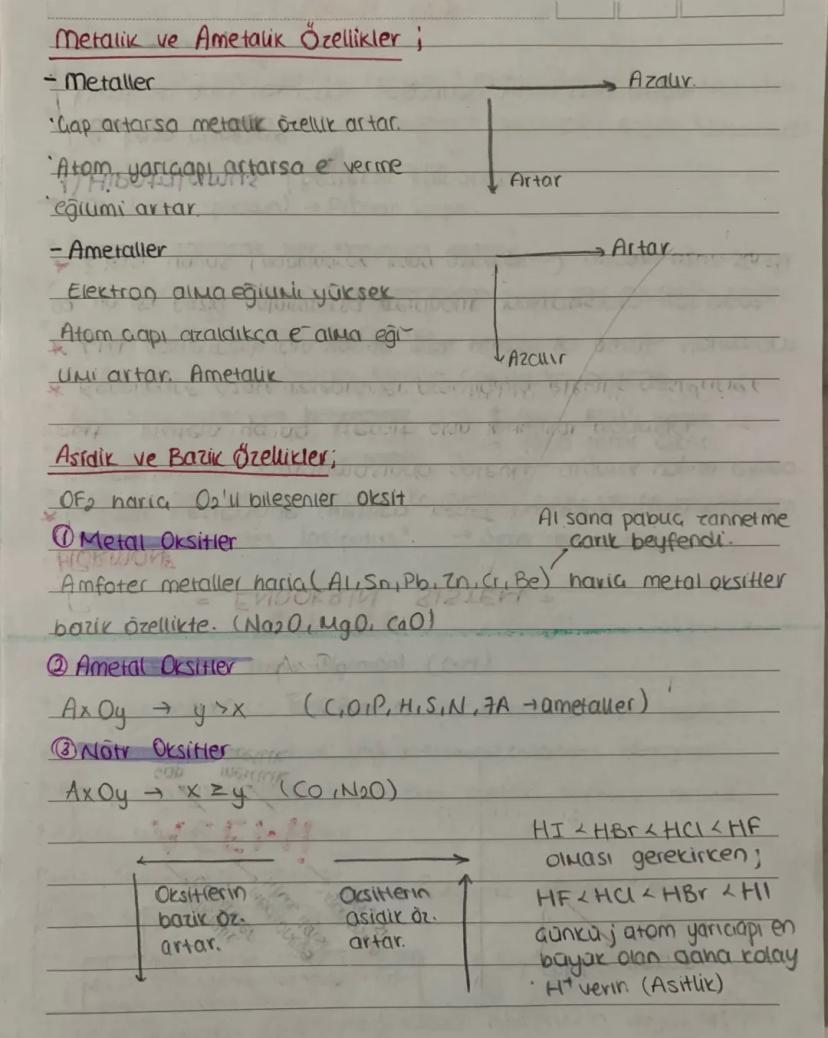 Metalik ve Ametalik Özellikler ;
- Metaller
Azalır.
Çap artarsa metalik özellik artar.
Atom yarıçapı artarsa e⁻ verme
Artar
eğilimi artar.
- Ametaller
Artar
Elektron alma eğilimi yüksek
Atom çapı azaldıkça e⁻ alma eği-
Azalır
limi artar. Ametalik
Asidik ve Bazik Özellikler;
OF₂ hariç O₂'li bileşenler oksit
Al sana pabuç zannetme
① Metal Oksitler
çarık beyfendi.
Amfoter metaller hariç (Al, Sn, Pb, Zn, Cr, Be) hariç metal oksitler
bazik özellikte. (Na₂O, MgO, CaO)
② Ametal Oksitler
AxOy → y>x (C, O, P, H, S, N, 7A → ametaller)
③ Nötr Oksitler
AxOy → x ≥ y (CO, N₂O)
HI < HBr < HCl < HF
olması gerekirken;
Oksitlerin
bazik öz.
artar.
Oksitlerin
asidik öz.
artar.
HF < HCl < HBr < HI
Çünkü; atom yarıçapı en
büyük olan daha kolay
H⁺ verir. (Asitlik)